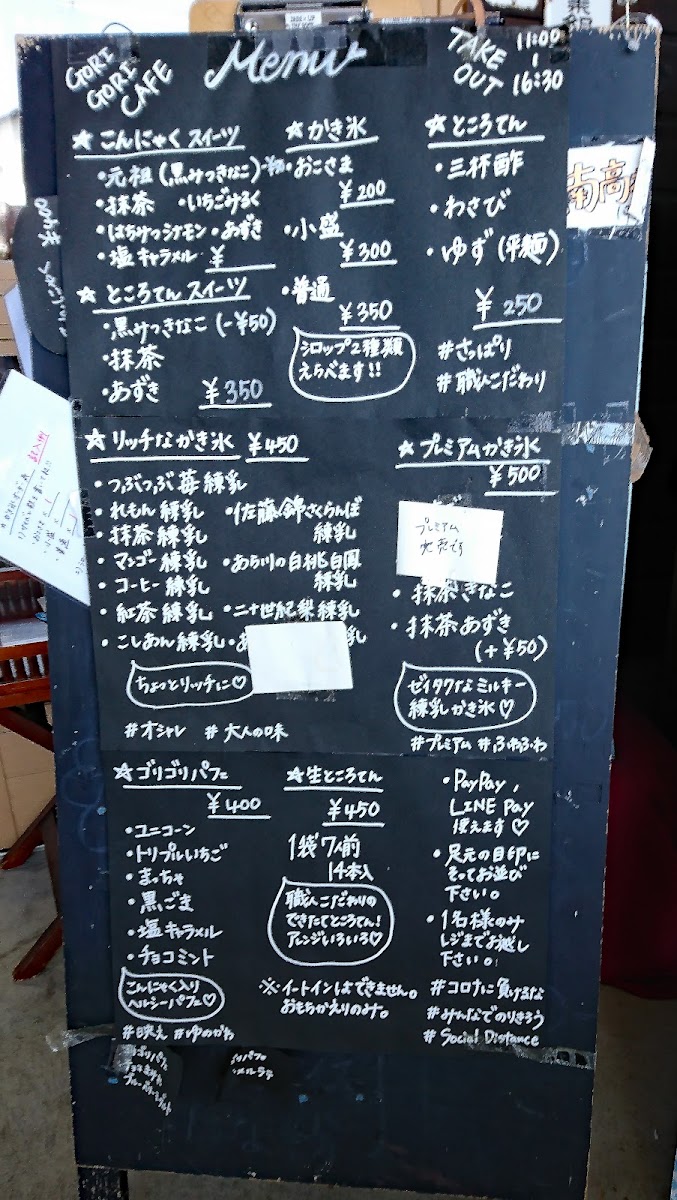 GORI
GORI
CAFE
Menu
TAKE
OUT
11:00
16:30
☆こんにゃくスイーツ
・元祖(黒みつきなこ)
・抹茶 ・いちごみるく
・はちみつシナモン・あずき
・塩キャラメル ¥
☆ところてんスイーツ
・黒みつきなこ(-¥50)
・抹茶
・あずき ¥350
☆かき氷
・おこさま
¥200
・小盛
¥300
・普通
¥350
シロップ2種類
えらべます!!
☆ところてん
・三杯酢
・わさび
・ゆず(平麺)
¥250
#さっぱり
#職人こだわり
南高
☆リッチなかき氷 ¥450
・つぶつぶ苺練乳
・れもん練乳
・抹茶練乳
・マンゴー練乳
・コーヒー練乳
・紅茶練乳
・こしあん練乳
・佐藤錦さくらんぼ
練乳
・あら川の白桃白鳳
練乳
・二十世紀梨練乳
ちょっとリッチに♡
#オシャレ #大人の味
☆プレミアムかき氷
¥500
プレミアム
完売です
・抹茶きなこ
・抹茶あずき
(+¥50)
ゼイタクなミルキー
練乳かき氷♡
#プレミアム #ふわふわ
☆ゴリゴリパフェ
¥400
・ユニコーン
・トリプルいちご
・まっちゃ
・黒ごま
・塩キャラメル
・チョコミント
こんにゃく入り
ヘルシーパフェ♡
#映え #ゆのかわ
☆生ところてん
¥450
1袋7人前
14本入
職人こだわりの
できたてところてん!
アレンジいろいろ♡
※イートインはできません。
おもちかえりのみ。
・PayPay,
LINE Pay
使えます♡
・足元の目印に
そってお並び
下さい。
・1名様のみ
レジまでお越し
下さい。
#コロナに負けるな
#みんなでのりきろう
#Social Distance